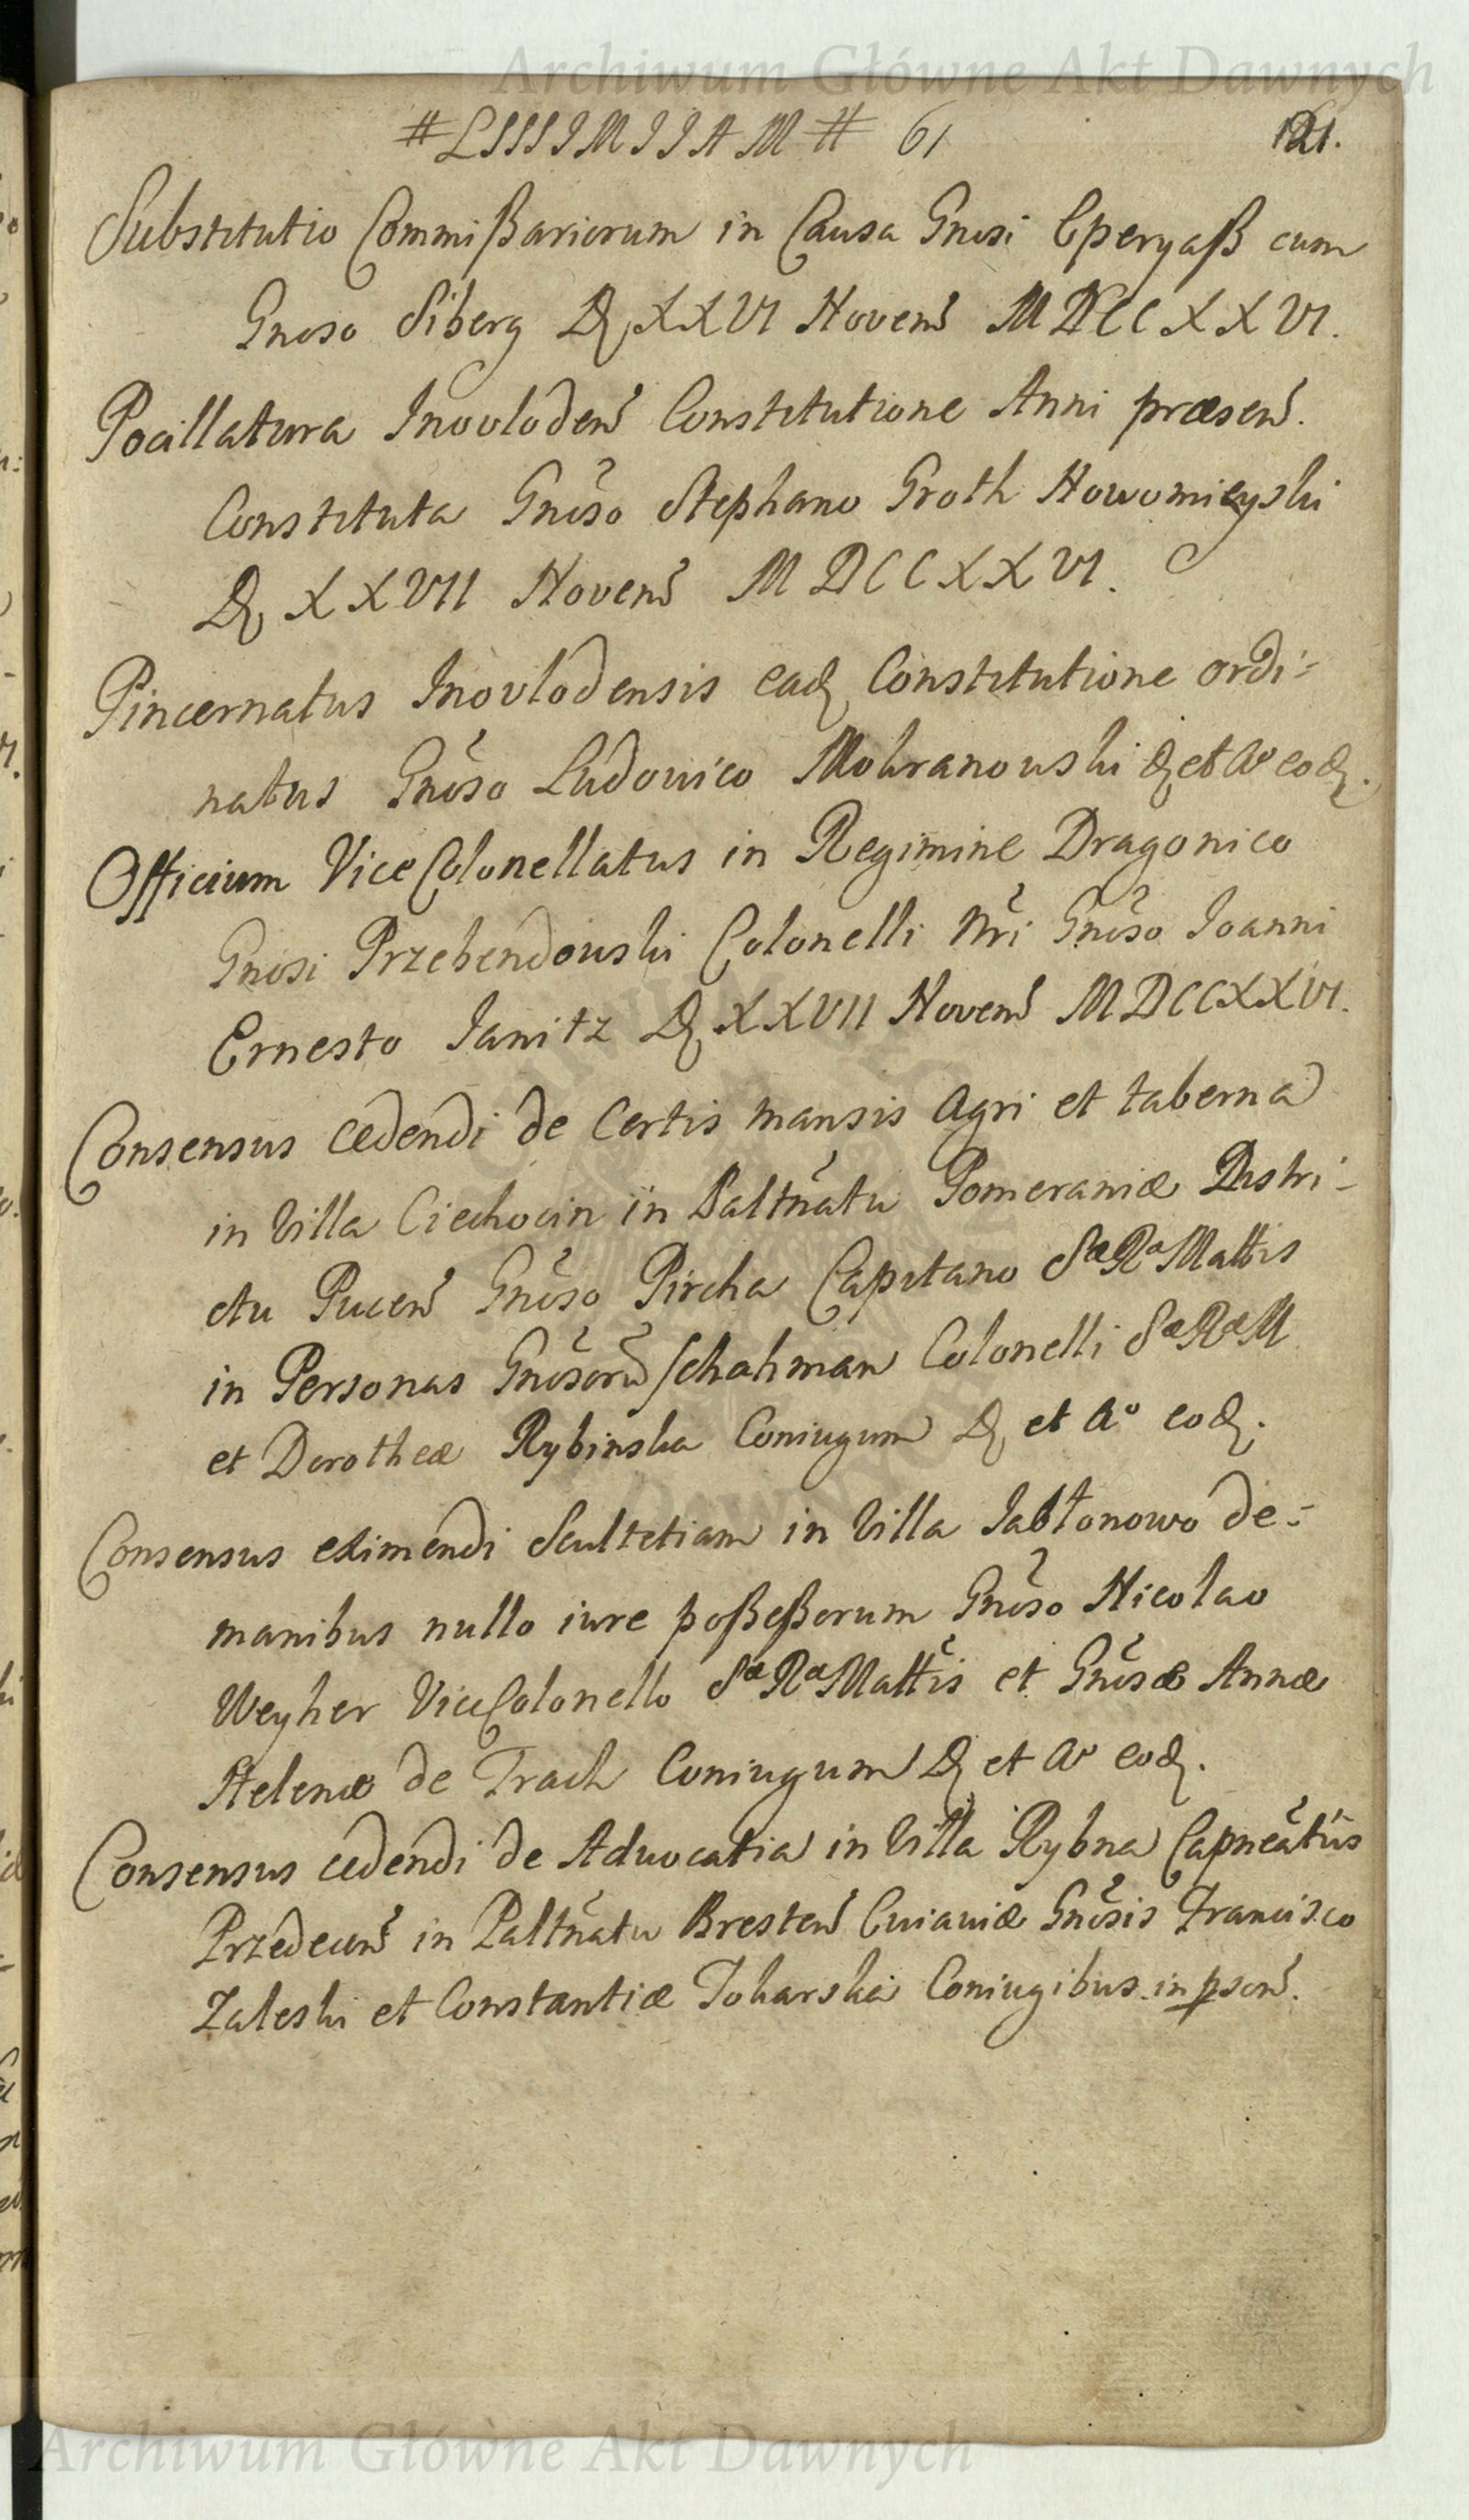 Archiwum Główne Akt Dawnych
# LSSSIMIIAM # 61 121.
Substitutio Commißariorum in Causa Gnosi Eperyaß cum
Gnoso Siberg D. XXVI Novens MDCCXXVI.
Pocillatura Inovlodens Constitutione Anni præsens.
Constituta Gnõso Stephano Groth Nowomieyski
D. XXVII Novens MDCCXXVI.
Pincernatus Inovlodensis ead. Constitutione ordi-
natus Gnõso Ludovico Mokranowski d. et Aº eod.
Officium ViceColonellatus in Regimine Dragonico
Gnosi Przebendowski Colonelli Nri Gnõso Joanni
Ernesto Janitz D. XXVII Novens MDCCXXVI.
Consensus cedendi de Certis mansis Agri et taberna
in Villa Ciechocin in Paltnatu Pomeraniæ Distri-
ctu Pucens Gnõso Pircha Capitano SæRæMattis
in Personas Gnõsorũ Schahman Colonelli SæRæM
et Dorotheæ Rybinska Coniugum D. et Aº eod.
Consensus eximendi Scultetiam in Villa Jabłonowo de-
manibus nullo iure poßeßorum Gnõso Nicolao
Weyher ViceColonello SæRæMattis et Gnõsæ Annæ
Helenæ de Trach Coniugum D. et Aº eod.
Consensus cedendi de Advocatia in Villa Rybna Capneatûs
Przedecens in Paltnatu Brestens Cuiaviæ Gnõsis Francisco
Zaleski et Constantiæ Tokarska Coniugibus in psons.
Archiwum Główne Akt Dawnych